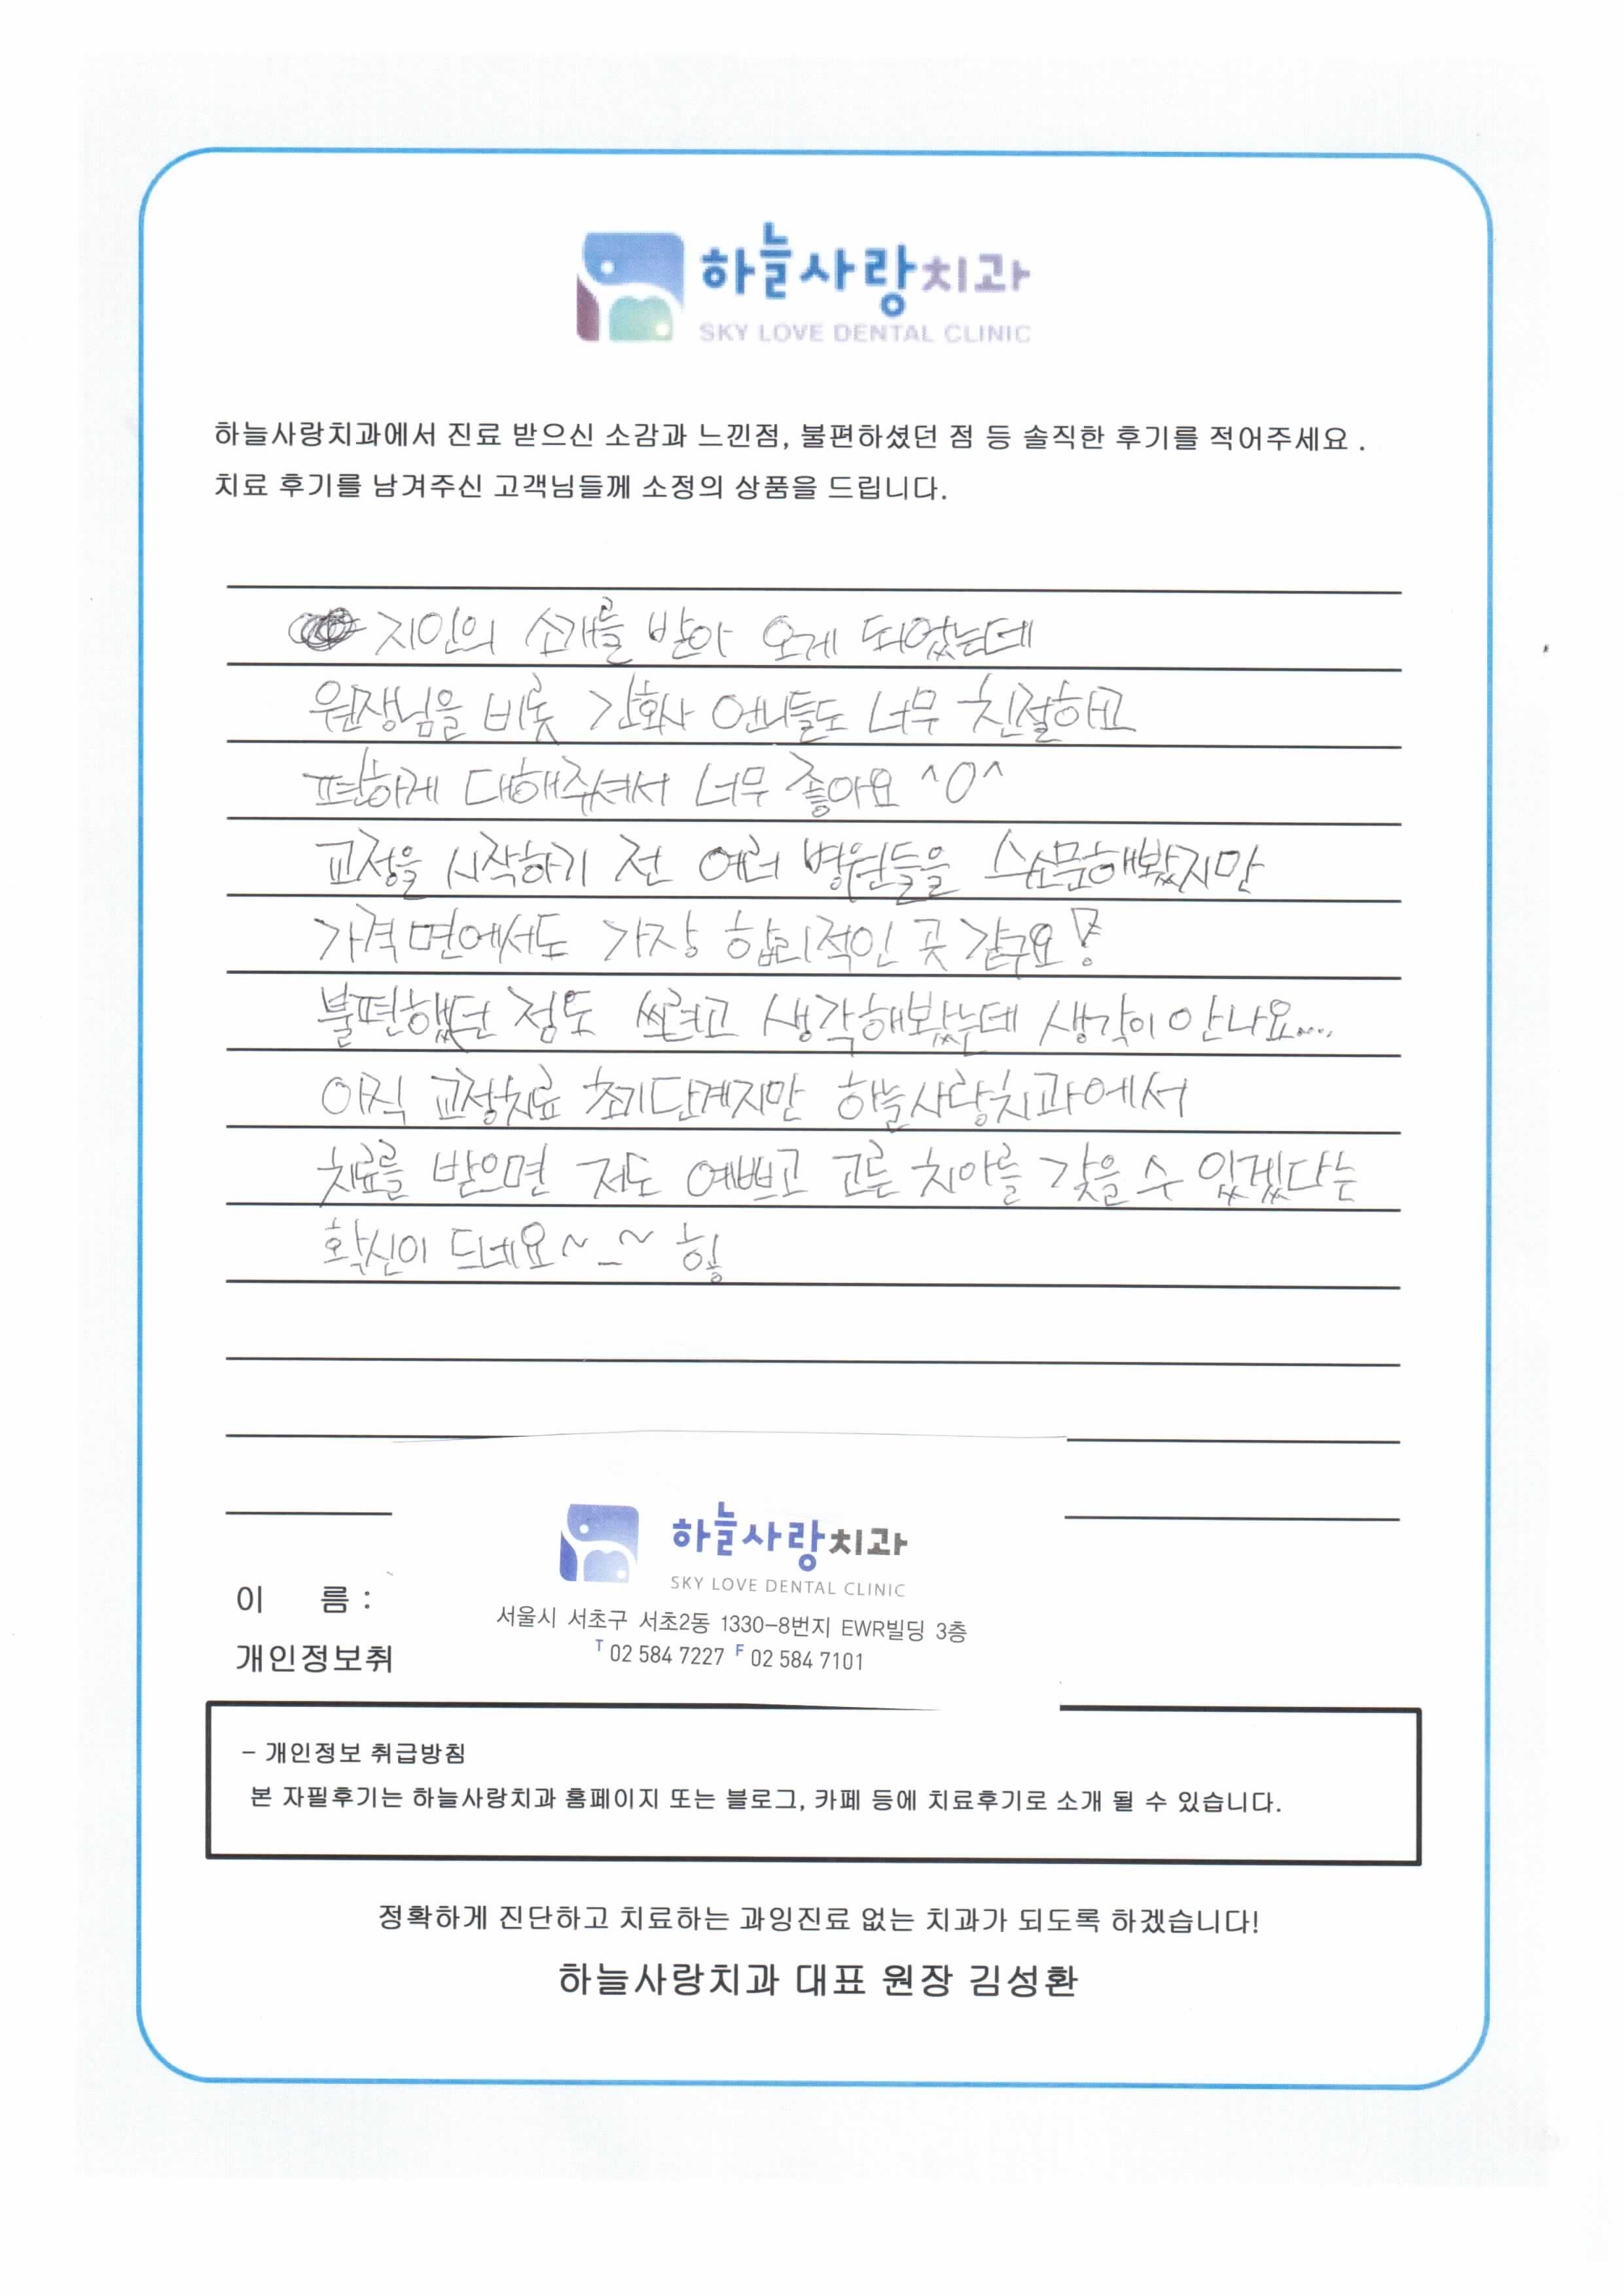 하늘사랑치과
SKY LOVE DENTAL CLINIC
하늘사랑치과에서 진료 받으신 소감과 느낀점, 불편하셨던 점 등 솔직한 후기를 적어주세요.
치료 후기를 남겨주신 고객님들께 소정의 상품을 드립니다.
지인의 소개를 받아 오게 되었는데
원장님을 비롯 간호사 언니들도 너무 친절하고
편하게 대해주셔서 너무 좋아요 ^O^
교정을 시작하기 전 여러 병원들을 수소문해봤지만
가격면에서도 가장 합리적인 곳 같구요!
불편했던 점도 쓰려고 생각해봤는데 생각이 안나요....
아직 교정치료 초기단계지만 하늘사랑치과에서
치료를 받으면 저도 예쁘고 고른 치아를 갖을 수 있겠다는
확신이 드네요~_~ 히힝
하늘사랑치과
SKY LOVE DENTAL CLINIC
서울시 서초구 서초2동 1330-8번지 EWR빌딩 3층
T 02 584 7227 F 02 584 7101
이 름 :
개인정보취
- 개인정보 취급방침
본 자필후기는 하늘사랑치과 홈페이지 또는 블로그, 카페 등에 치료후기로 소개 될 수 있습니다.
정확하게 진단하고 치료하는 과잉진료 없는 치과가 되도록 하겠습니다!
하늘사랑치과 대표 원장 김성환